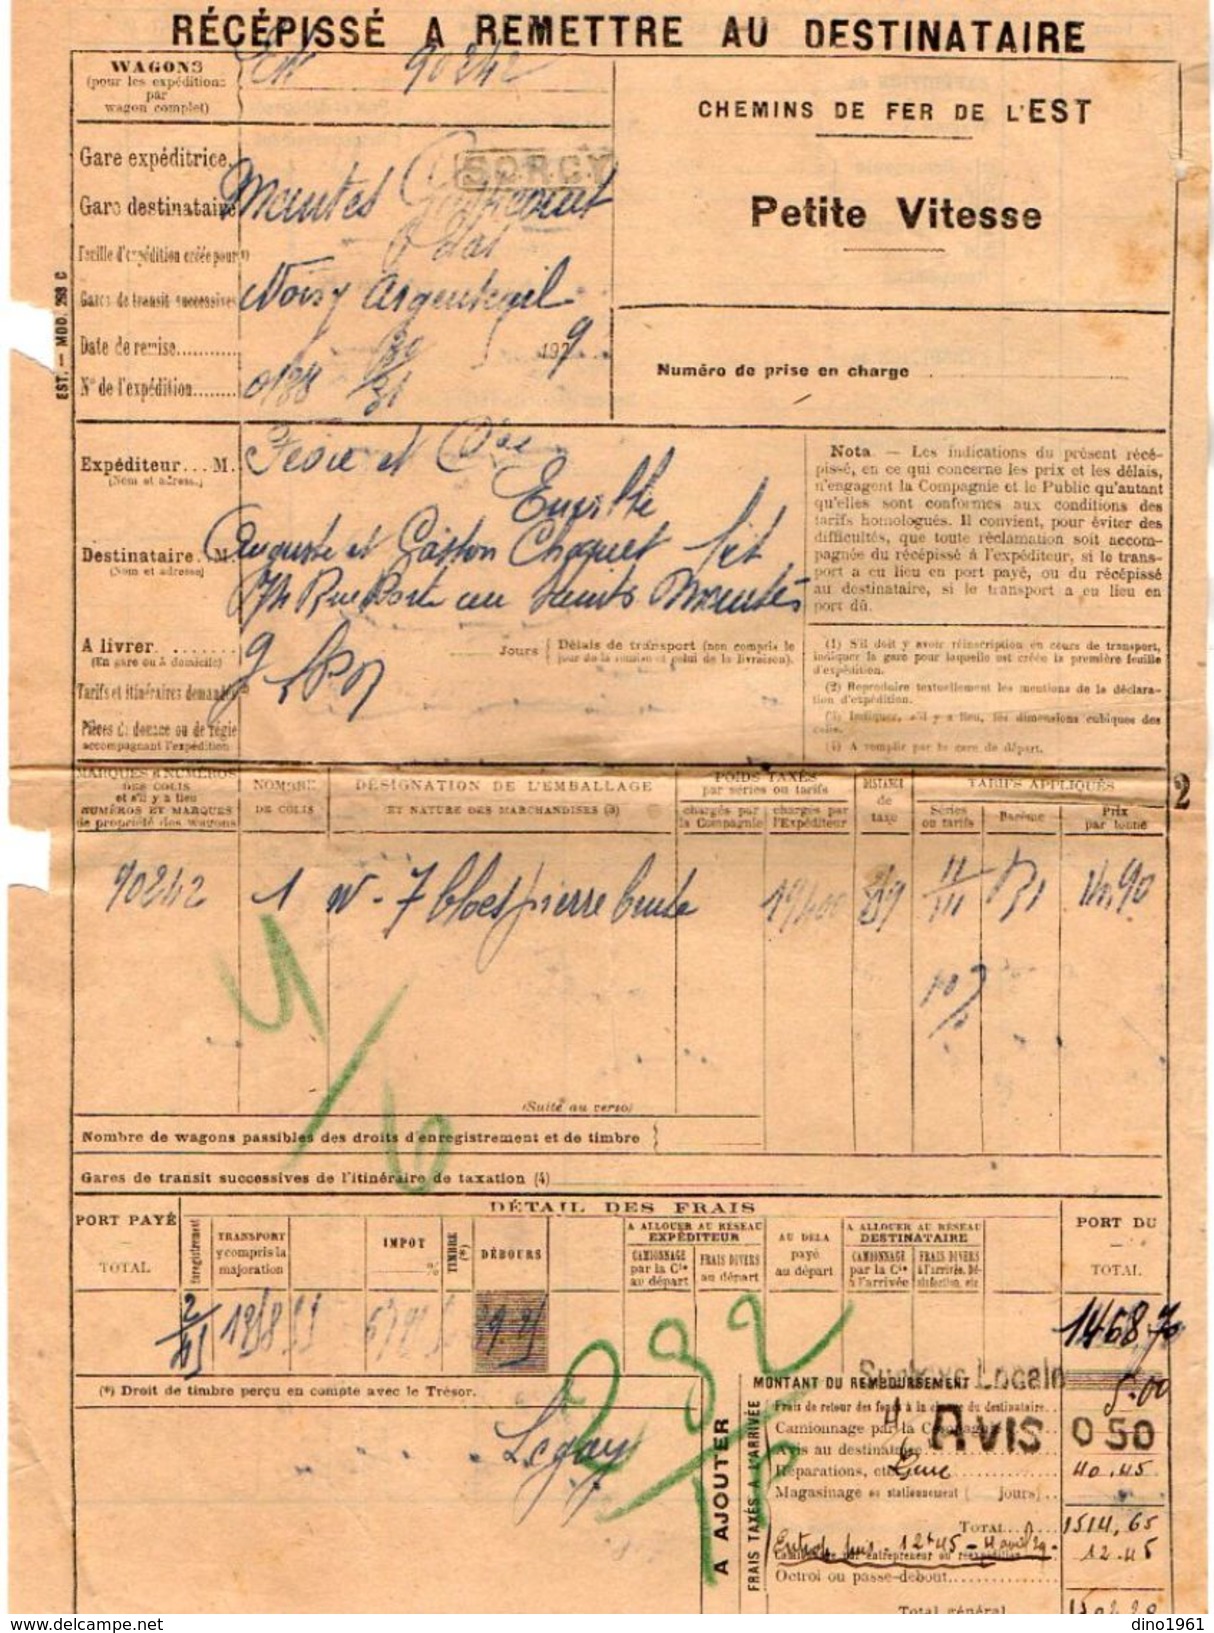 RÉCÉPISSÉ A REMETTRE AU DESTINATAIRE
WAGONS
(pour les expéditions
par
wagon complet)
Est 90242
CHEMINS DE FER DE L'EST
Petite Vitesse
Numéro de prise en charge
EST. — MOD. 293 C
Gare expéditrice.
SORCY
Gare destinataire
Mantes Gassicourt
Feuille d'expédition créée pour
Gares de transit successives
Noisy Argenteuil
Date de remise
30 1929
N° de l'expédition
31
Expéditeur... M.
(Nom et adresse.)
et Cie
Euville
Destinataire. M.
(Nom et adresse)
Auguste et Gaston Choquet
Rue Porte aux Saints Mantes
A livrer
(En gare ou à domicile)
g
Jours { Délais de transport (non compris le
jour de la remise et celui de la livraison).
Tarifs et itinéraires demandés
Pièces de douane ou de régie
accompagnant l'expédition
Nota. — Les indications du présent récé-
pissé, en ce qui concerne les prix et les délais,
n'engagent la Compagnie et le Public qu'autant
qu'elles sont conformes aux conditions des
tarifs homologués. Il convient, pour éviter des
difficultés, que toute réclamation soit accom-
pagnée du récépissé à l'expéditeur, si le trans-
port a eu lieu en port payé, ou du récépissé
au destinataire, si le transport a eu lieu en
port dû.
(1) S'il doit y avoir réinscription en cours de transport,
indiquer la gare pour laquelle est créée la première feuille
d'expédition.
(2) Reproduire textuellement les mentions de la déclara-
tion d'expédition.
(3) Indiquer, s'il y a lieu, les dimensions cubiques des
colis.
(4) A remplir par la gare de départ.
MARQUES & NUMÉROS
DES COLIS
et s'il y a lieu
NUMÉROS ET MARQUES
de propriété des wagons
NOMBRE
DE COLIS
DÉSIGNATION DE L'EMBALLAGE
ET NATURE DES MARCHANDISES (3)
POIDS TAXÉS
par séries ou tarifs
chargés par
la Compagnie
chargés par
l'Expéditeur
DISTANCE
de
taxe
TARIFS APPLIQUÉS
Séries
ou tarifs
Barème
Prix
par tonne
2
90242 1 W - 7 blocs pierre brute 19400 14,90
(Suite au verso)
Nombre de wagons passibles des droits d'enregistrement et de timbre }
Gares de transit successives de l'itinéraire de taxation (4)
DÉTAIL DES FRAIS
PORT PAYÉ
TOTAL
Enregistrement
TRANSPORT
y compris la
majoration
IMPOT
%
TIMBRE
(*)
DÉBOURS
A ALLOUER AU RÉSEAU
EXPÉDITEUR
CAMIONNAGE
par la Cie
au départ
FRAIS DIVERS
au départ
AU DELA
payé
au départ
A ALLOUER AU RÉSEAU
DESTINATAIRE
CAMIONNAGE
par la Cie
à l'arrivée
FRAIS DIVERS
à l'arrivée, Dé-
sinfection, etc
PORT DU
TOTAL
1468,70
(*) Droit de timbre perçu en compte avec le Trésor.
Surtaxe Locale
5.00
A AJOUTER
FRAIS TAXÉS A L'ARRIVÉE
MONTANT DU REMBOURSEMENT
Frais de retour des fonds à la charge du destinataire..
Camionnage par la Compagnie
AVIS 0 50
Avis au destinataire
Réparations, etc. Grue 40.45
Magasinage ou stationnement ( jours)
TOTAL 1514,65
12f45 - 4 avril 29 - 12.45
Camionnage par entrepreneur ou réexpédition
Octroi ou passe-debout
Total général
delcampe.net
dino1961